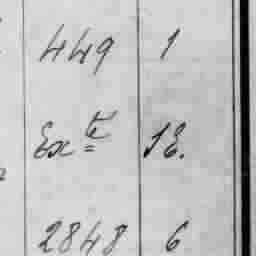 449 1
Ex te 1E.
2848 6